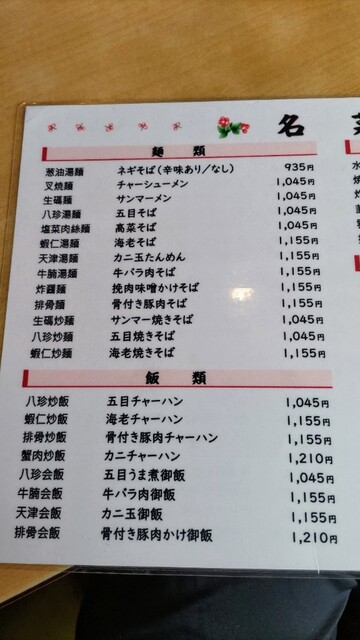 名
麺 類
葱油湯麺 ネギそば(辛味あり/なし) 935円
叉焼麺 チャーシューメン 1,045円
生碼麺 サンマーメン 1,045円
八珍湯麺 五目そば 1,045円
塩菜肉絲麺 高菜そば 1,045円
蝦仁湯麺 海老そば 1,155円
天津湯麺 カニ玉たんめん 1,155円
牛腩湯麺 牛バラ肉そば 1,155円
炸醤麺 挽肉味噌かけそば 1,155円
排骨麺 骨付き豚肉そば 1,155円
生碼炒麺 サンマー焼きそば 1,045円
八珍炒麺 五目焼きそば 1,045円
蝦仁炒麺 海老焼きそば 1,155円
飯 類
八珍炒飯 五目チャーハン 1,045円
蝦仁炒飯 海老チャーハン 1,155円
排骨炒飯 骨付き豚肉チャーハン 1,155円
蟹肉炒飯 カニチャーハン 1,210円
八珍会飯 五目うま煮御飯 1,045円
牛腩会飯 牛バラ肉御飯 1,155円
天津会飯 カニ玉御飯 1,155円
排骨会飯 骨付き豚肉かけ御飯 1,210円